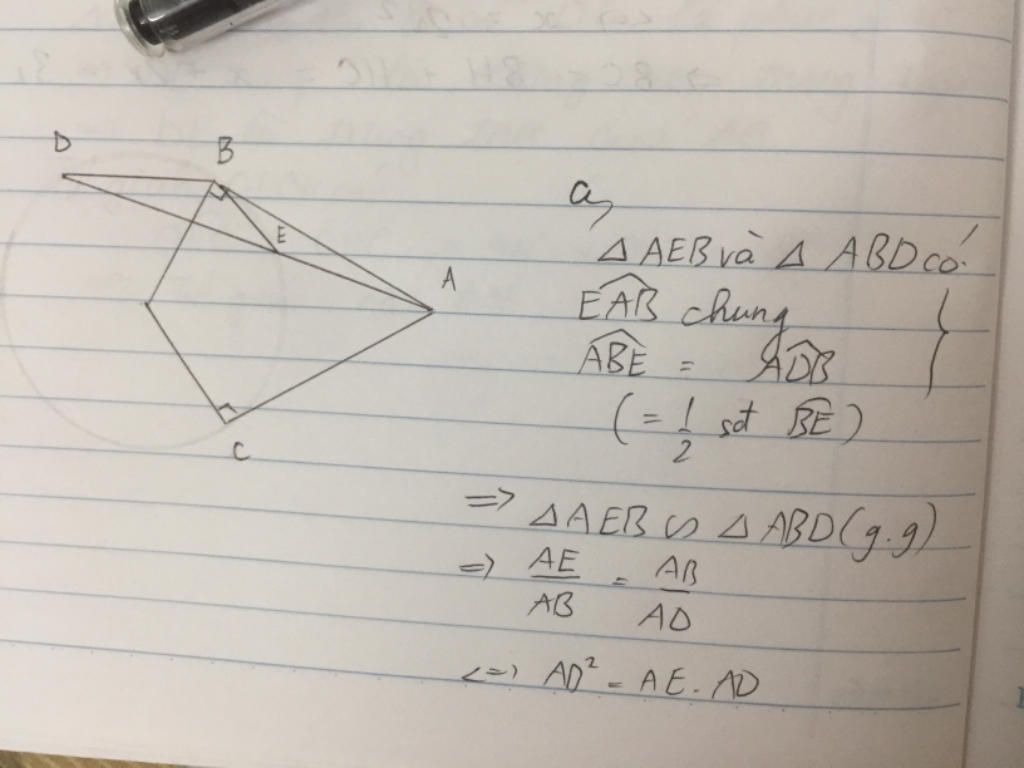 D
B
E
A
C
a,
Δ AEB và Δ ABD có:
\widehat{EAB} chung
\widehat{ABE} = \widehat{ADB}
(= \frac{1}{2} sđ \widehat{BE})
=> Δ AEB ∽ Δ ABD (g.g)
=> \frac{AE}{AB} = \frac{AB}{AD}
<=> AD² = AE . AD